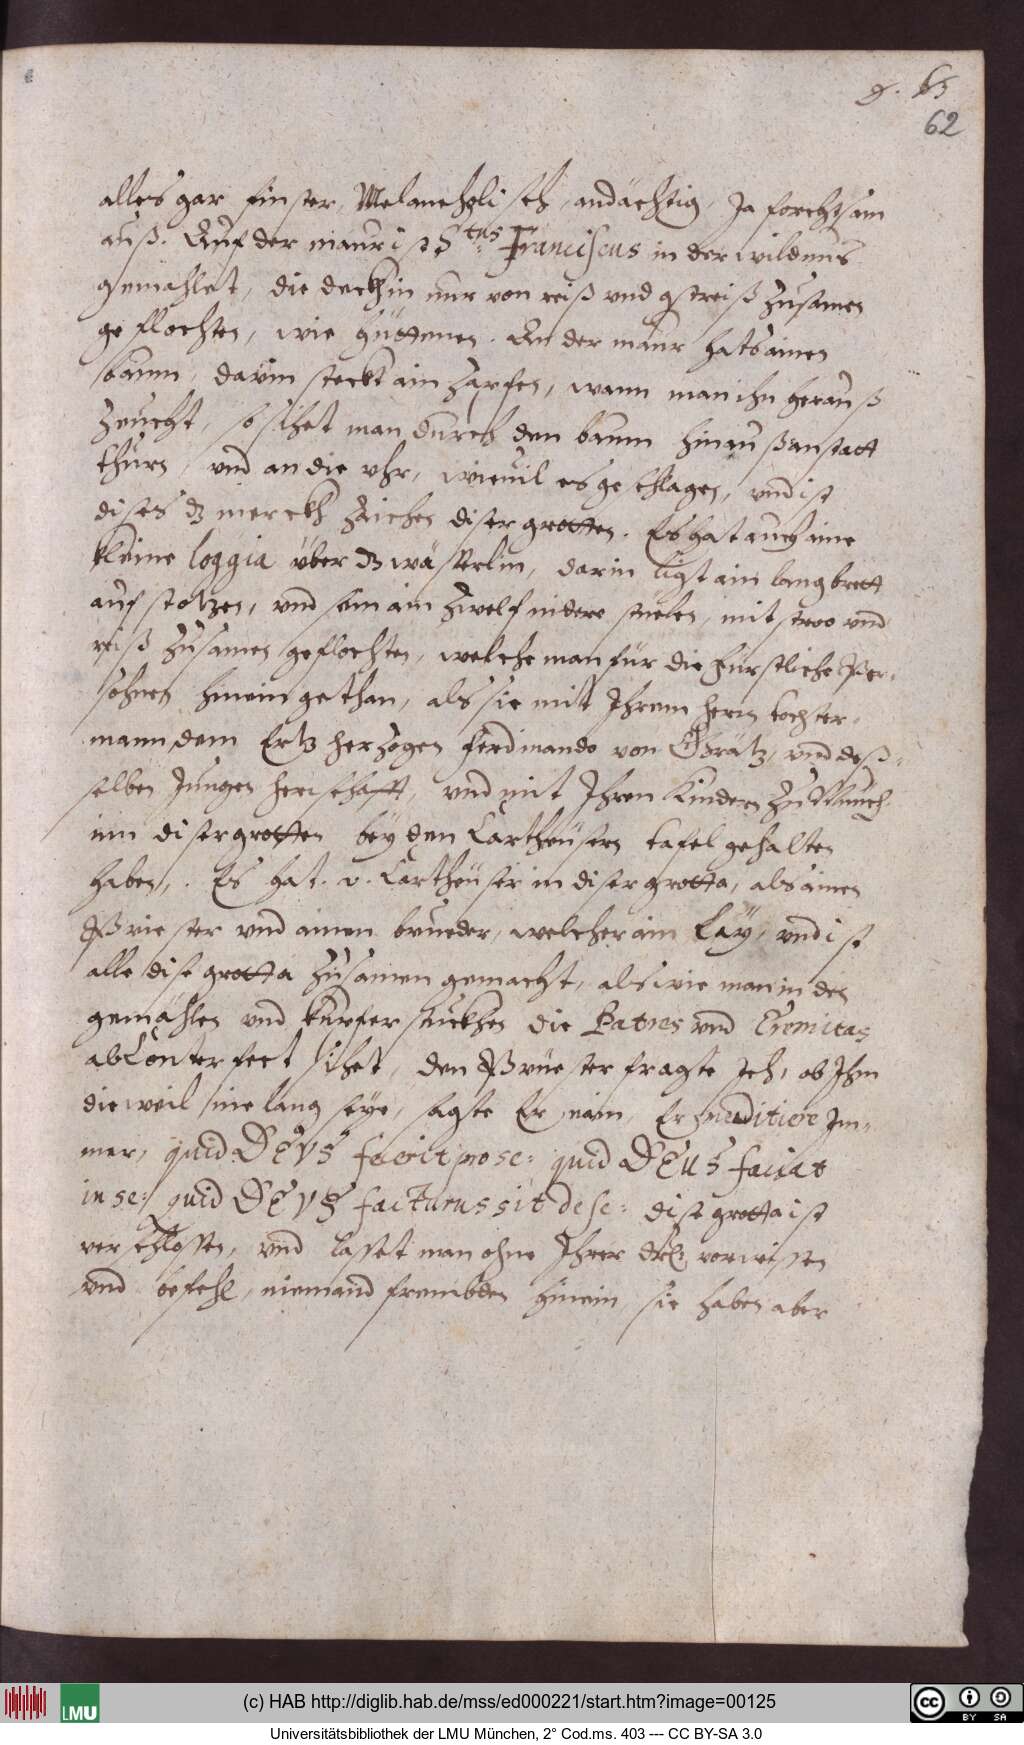 g. 63
62
alles gar finster, Melancholisch, andächtig, Ja forchtsam
auß. Auf der maur ist Stus. Franciscus in der wildnus
gemahlet, die deckhin nur von reiß vnd gstreiß zusamen
geflochten, wie hüttenen. An der maur hats ainen
baum, darin steckt ain zapfen, wann man ihn herauß
zeucht, so sihet man durch den baum hinauß an statt
thurn, vnd an die vhr, wieuil es geschlagen, vnd ist
dises dz merckh zaichen diser grotten. Es hat auch aine
kleine loggia über dz wässerlin, darin ligt ain lang brett
auf stotzen, vnd sein ain zwelf nidere stüelen, mit stroo vnd
reiß zusamen geflochten, welche man für die Fürstliche Per-
sohnen hinein gethan, als sie mit Ihrem hern tochter-
mann, dem Ertzherzogen Ferdinando von Grätz, vnd deß-
selben Jungen herrschafft, vnd mit Ihren Kindern zu Münch
inn diser grotten bey den Cartheusern tafel gehalten
haben,. Es hat. 2. Cartheuser in diser grotta, als ainen
Priester vnd ainen brueder, welcher ain Laÿ, vnd ist
alle dise grotta zusamen gemacht, als wie man in den
gemählen vnd kupfer stuckhen die Patres vnd Eremitas
abConterfeet sihet, den Priester fragte Ich, ob Ihm
die weil nie lang seye, sagte Er nain, Er meditiere Im-
mer, quid DEVS fecerit pro se: quid DEUS faciat
in se: quid DEVS facturus sit de se: dise grotta ist
verschlossen, vnd lasset man ohne Ihrer Drl. vorwissen
vnd befehl, niemand frembden hinein, sie haben aber
(c) HAB http://diglib.hab.de/mss/ed000221/start.htm?image=00125
LMU
cc BY SA
Universitätsbibliothek der LMU München, 2° Cod.ms. 403 --- CC BY-SA 3.0